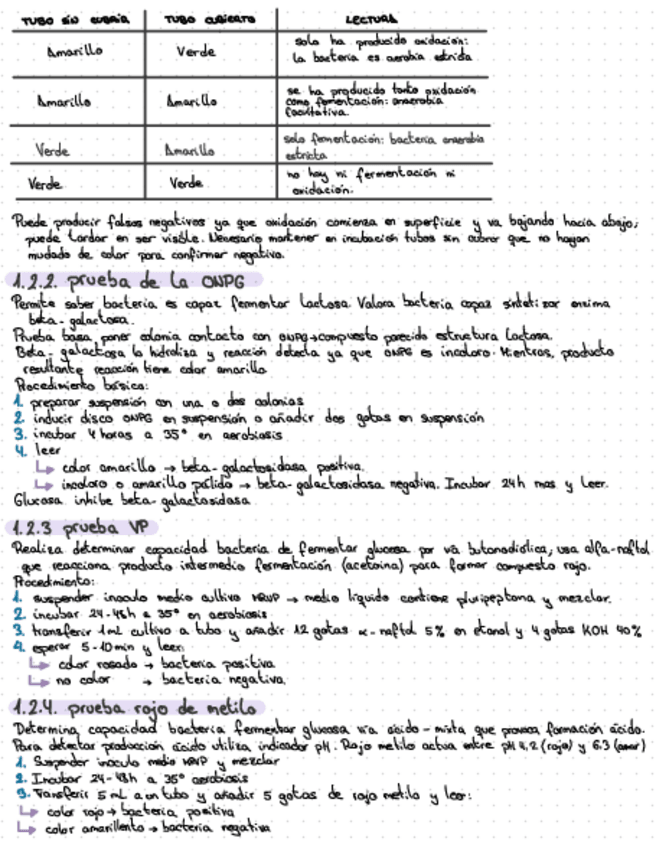 TUBO SIN CUBRIR TUBO CUBIERTO LECTURA
Amarillo Verde solo ha producido oxidación:
la bacteria es aerobia estricta
Amarillo Amarillo se ha producido tanto oxidación
como fermentación: anaerobia
facultativa.
Verde Amarillo solo fermentación: bacteria anaerobia
estricta
Verde Verde no hay ni fermentación ni
oxidación.
Puede producir falsos negativos ya que oxidación comienza en superficie y va bajando hacia abajo;
puede tardar en ser visible. Necesario mantener en incubación tubos sin cubrir que no hayan
mudado de color para confirmar negativo.
1.2.2. prueba de la ONPG
Permite saber bacteria es capaz fermentar lactosa. Valora bacteria capaz sintetizar enzima
beta-galactosa.
Prueba basa poner colonia contacto con ONPG→compuesto parecido estructura lactosa.
Beta-galactosa la hidroliza y reacción detecta ya que ONPG es incoloro. Mientras, producto
resultante reacción tiene color amarillo
Procedimiento básico:
1. preparar suspensión con una o dos colonias
2. inducir disco ONPG en suspensión o añadir dos gotas en suspensión
3. incubar 4 horas a 35° en aerobiosis
4. leer
↳ color amarillo → beta-galactosidasa positiva.
↳ incoloro o amarillo pálido → beta-galactosidasa negativa. Incubar 24h mas y leer.
Glucosa inhibe beta-galactosidasa
1.2.3 prueba VP
Realiza determinar capacidad bacteria de fermentar glucosa por vía butanodiolica, usa alfa-naftol
que reacciona producto intermedio fermentación (acetoina) para formar compuesto rojo.
Procedimiento:
1. suspender inoculo medio cultivo MRVP → medio líquido contiene pluripeptona y mezclar.
2. incubar 24-48h a 35° en aerobiosis
3. transferir 1mL cultivo a tubo y añadir 12 gotas α-naftol 5% en etanol y 4 gotas KOH 40%
4. esperar 5-10min y leer:
↳ color rosado → bacteria positiva
↳ no color → bacteria negativa.
1.2.4. prueba rojo de metilo
Determina capacidad bacteria fermentar glucosa vía ácido-mixta que provoca formación ácido.
Para detectar producción ácido utiliza indicador pH. Rojo metilo actua entre pH 4,2 (rojo) y 6.3 (amar)
1. Suspender inoculo medio MRVP y mezclar
2. Incubar 24-48h a 35° aerobiosis
3. Transferir 5 mL a un tubo y añadir 5 gotas de rojo metilo y leer:
↳ color rojo → bacteria positiva
↳ color amarillento → bacteria negativa